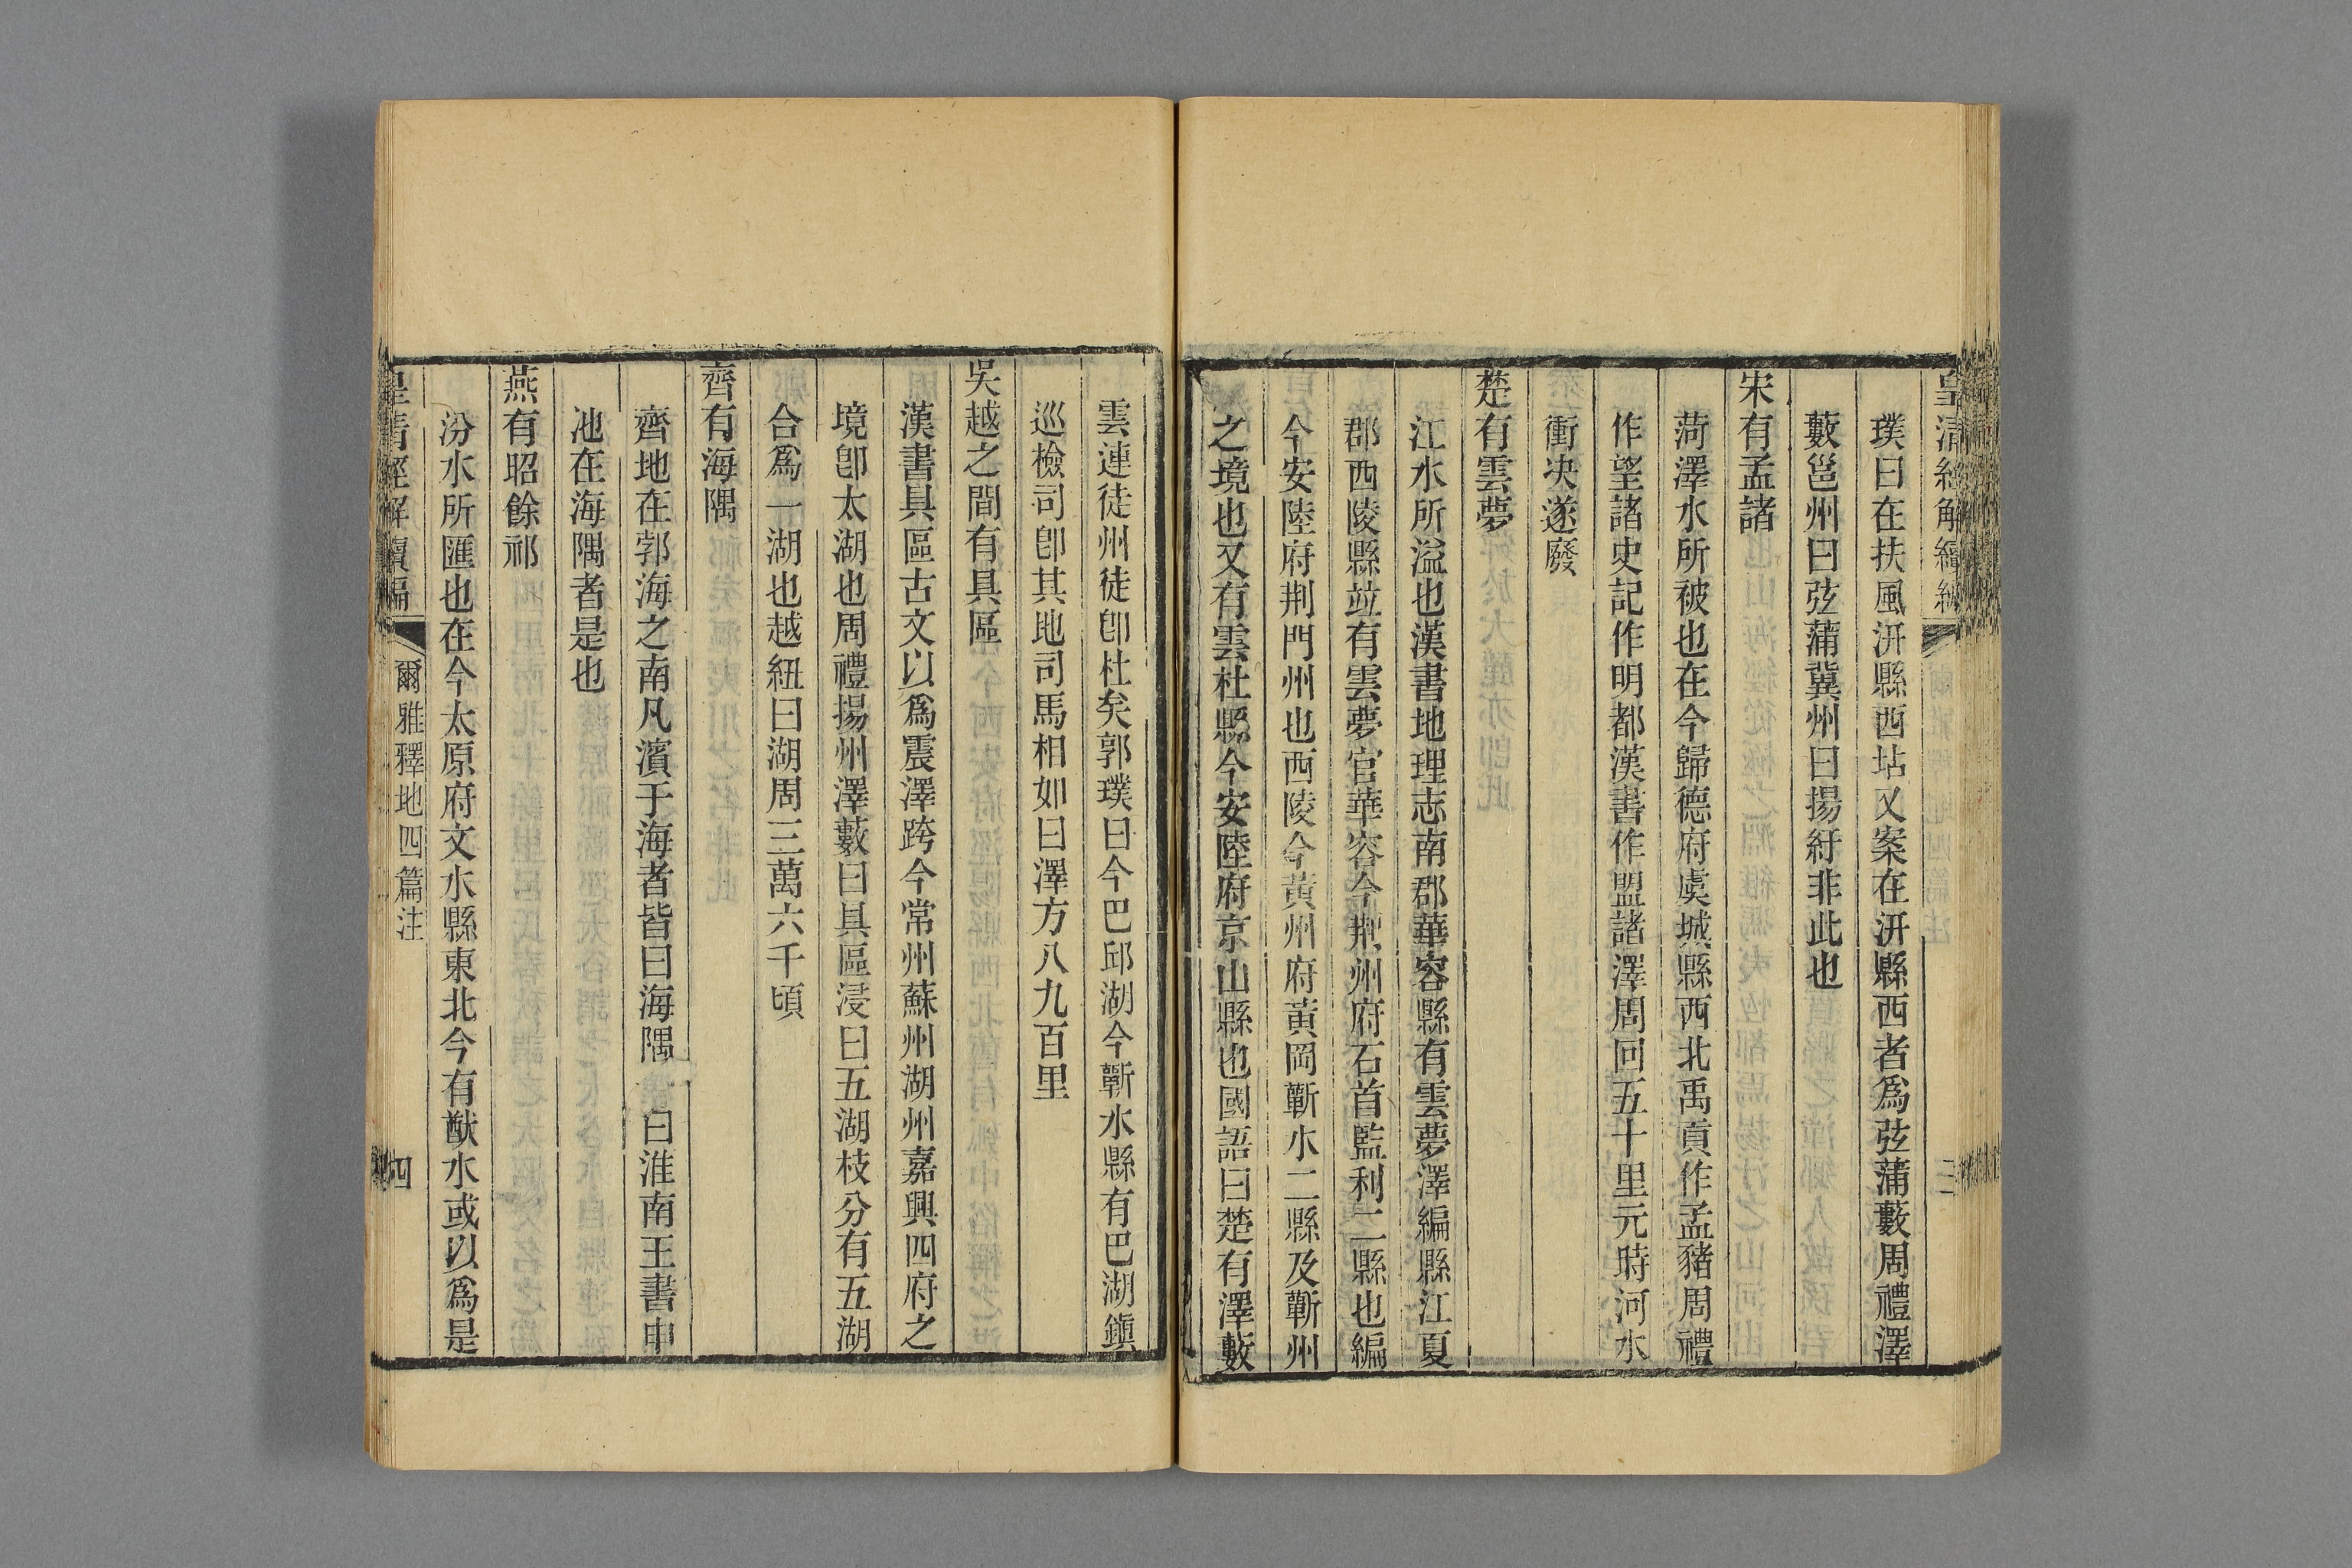 皇清經解續編
璞曰在扶風汧縣西坫又案在汧縣西者爲弦蒲藪周禮澤
藪邕州曰弦蒲冀州曰揚紆非此也
宋有孟諸
菏澤水所被也在今歸德府虞城縣西北禹貢作孟豬周禮
作望諸史記作明都漢書作盟諸澤周回五十里元時河水
衝決遂廢
楚有雲夢
江水所溢也漢書地理志南郡華容縣有雲夢澤編縣江夏
郡西陵縣竝有雲夢官華容今荆州府石首監利二縣也編
今安陸府荆門州也西陵今黃州府黃岡蘄水二縣及蘄州
之境也又有雲杜縣今安陸府京山縣也國語曰楚有澤藪
雲連徒州徒卽杜矣郭璞曰今巴邱湖今蘄水縣有巴湖鎭
巡檢司卽其地司馬相如曰澤方八九百里
吳越之間有具區
漢書具區古文以爲震澤跨今常州蘇州湖州嘉興四府之
境卽太湖也周禮揚州澤藪曰具區浸曰五湖枝分有五湖
合爲一湖也越紐曰湖周三萬六千頃
齊有海隅
齊地在郣海之南凡濱于海者皆曰海隅 曰淮南王書申
池在海隅者是也
燕有昭餘祁
汾水所匯也在今太原府文水縣東北今有猷水或以爲是
皇清經解續編 爾雅釋地四篇注 四